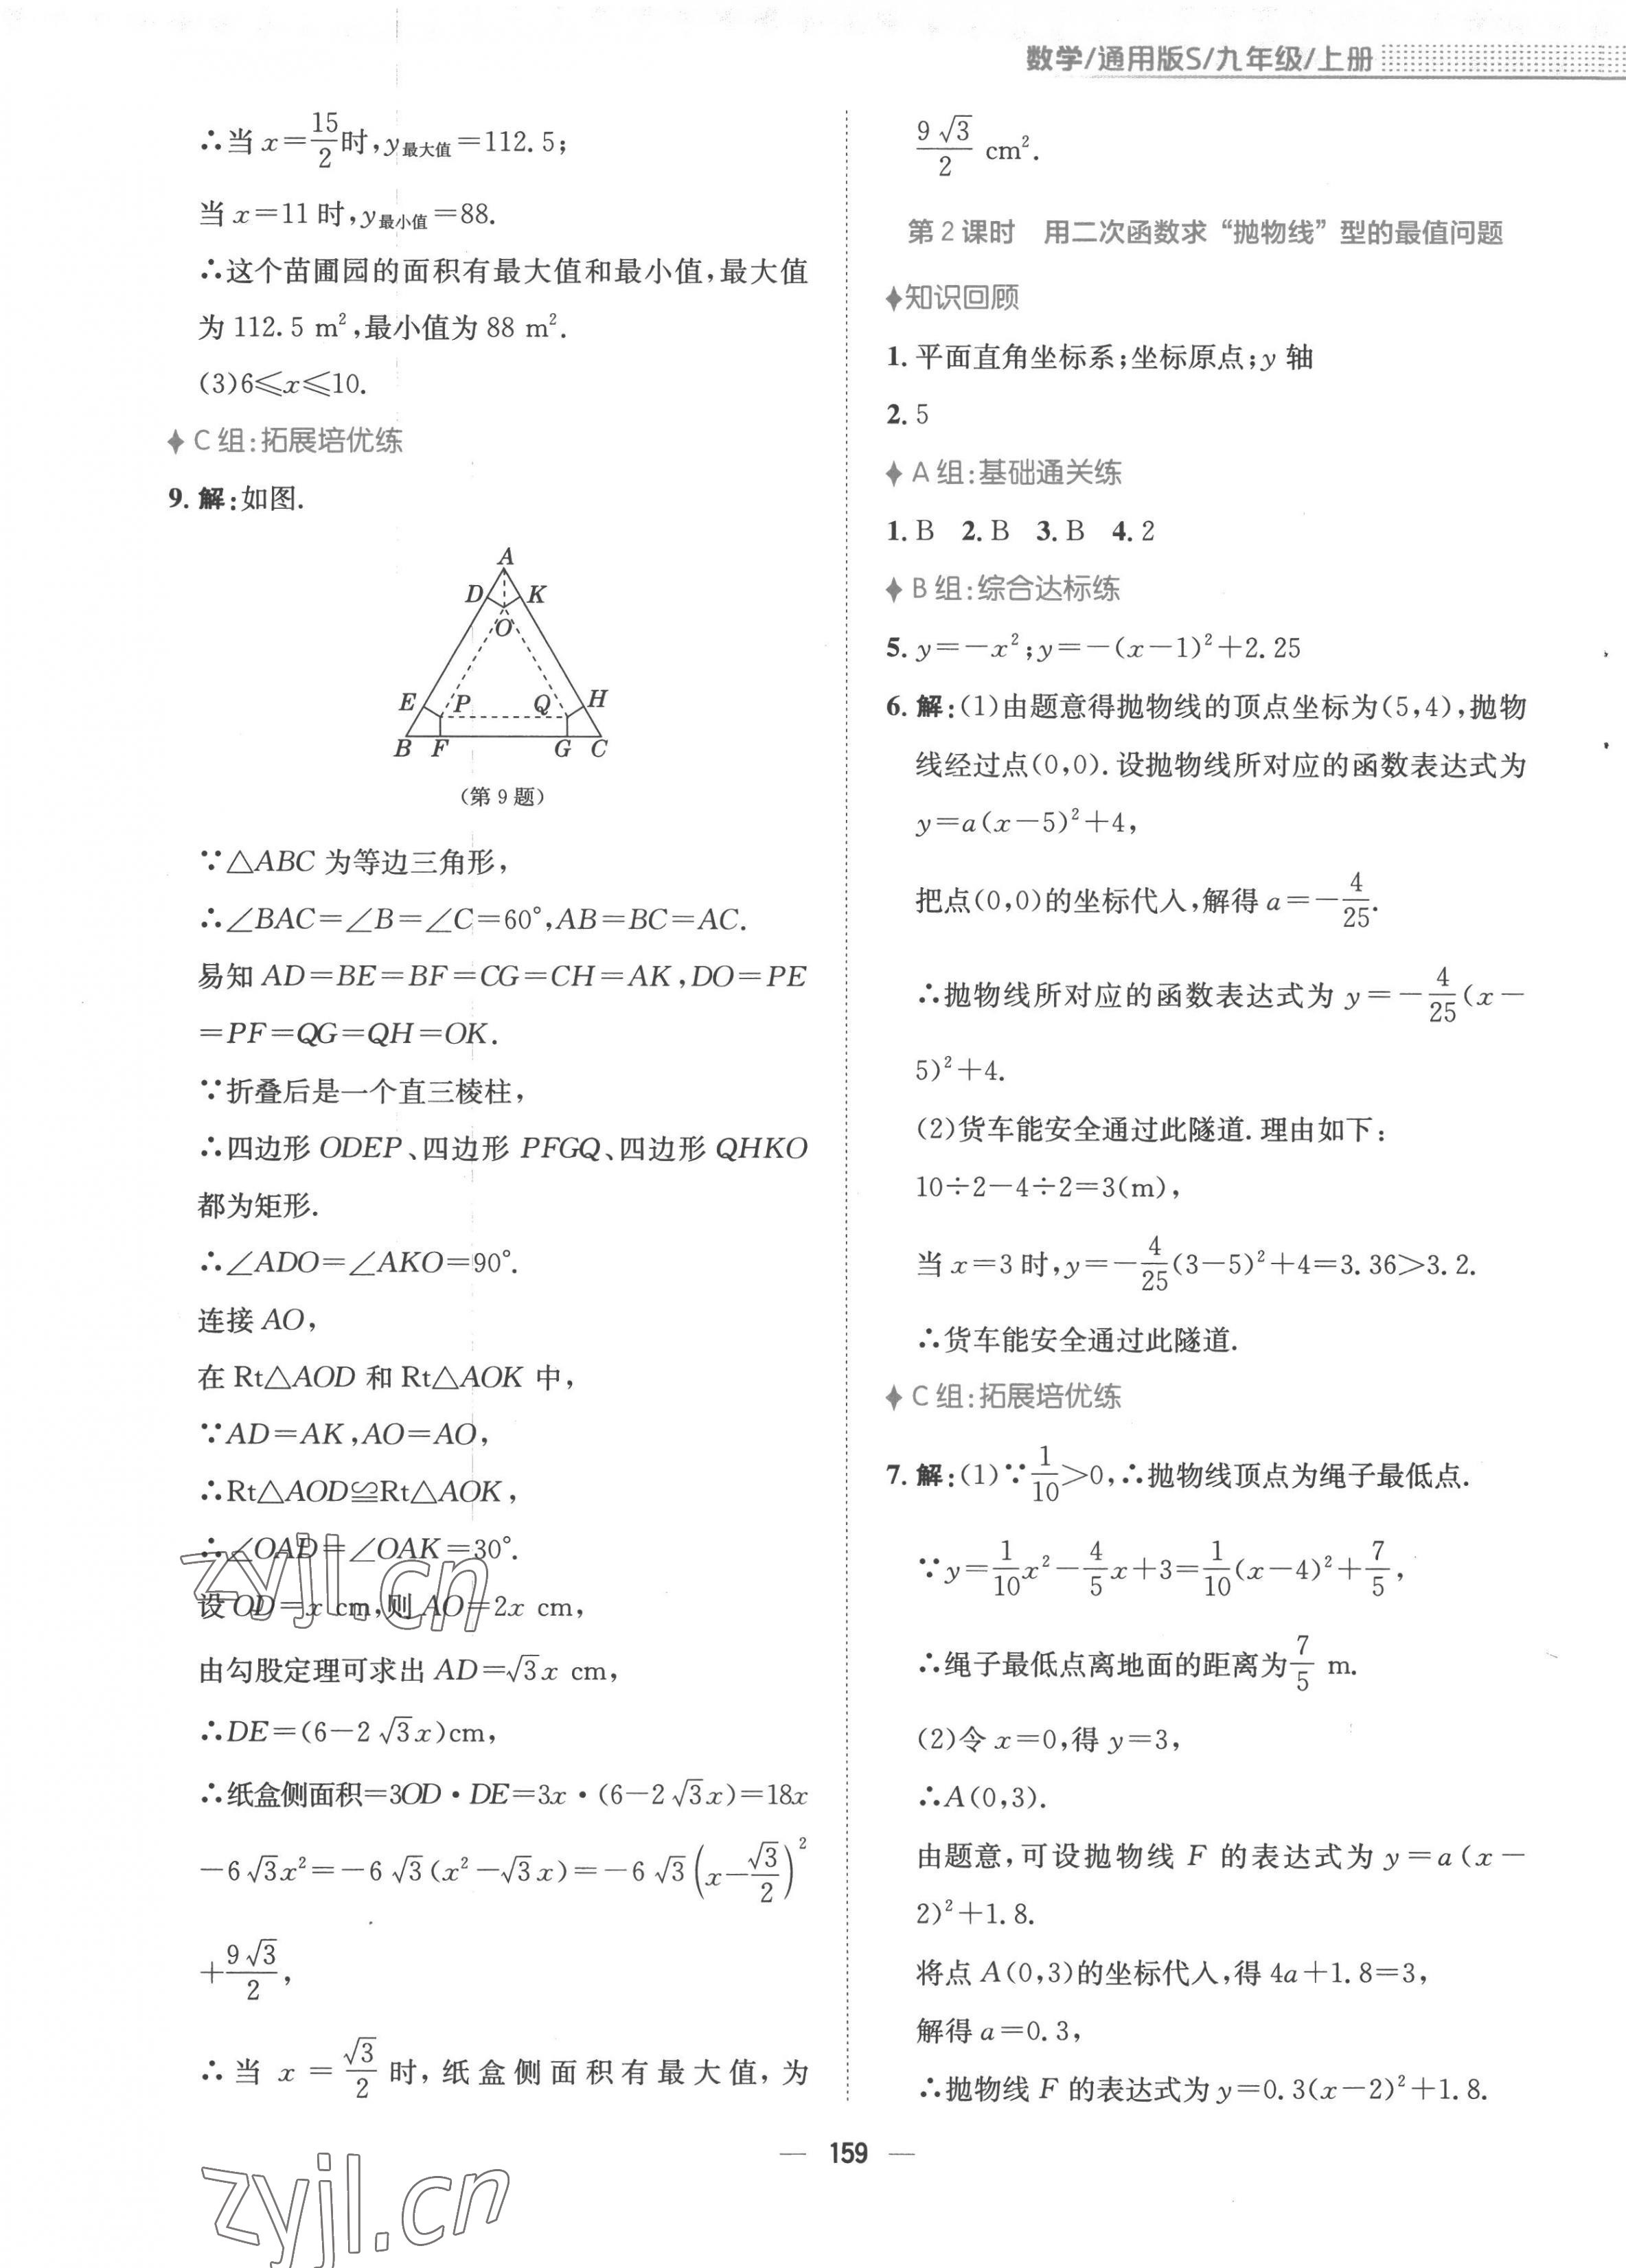 数学/通用版S/九年级/上册
∴当 x=15/2时,y最大值=112.5;
当 x=11 时,y最小值=88.
∴这个苗圃园的面积有最大值和最小值,最大值
为 112.5 m²,最小值为 88 m².
(3)6≤x≤10.
C 组:拓展培优练
9. 解:如图.
A
D K
O
E P Q H
B F G C
(第 9 题)
∵△ABC 为等边三角形,
∴∠BAC=∠B=∠C=60°,AB=BC=AC.
易知 AD=BE=BF=CG=CH=AK,DO=PE
=PF=QG=QH=OK.
∵折叠后是一个直三棱柱,
∴四边形 ODEP、四边形 PFGQ、四边形 QHKO
都为矩形.
∴∠ADO=∠AKO=90°.
连接 AO,
在 Rt△AOD 和 Rt△AOK 中,
∵AD=AK,AO=AO,
∴Rt△AOD≌Rt△AOK,
∴∠OAD=∠OAK=30°.
设 OD=x cm,则 AO=2x cm,
由勾股定理可求出 AD=√3x cm,
∴DE=(6-2√3x)cm,
∴纸盒侧面积=3OD·DE=3x·(6-2√3x)=18x
-6√3x²=-6√3(x²-√3x)=-6√3(x-√3/2)²
+9√3/2,
∴当 x=√3/2 时,纸盒侧面积有最大值,为
9√3/2 cm².
第 2 课时 用二次函数求“抛物线”型的最值问题
知识回顾
1. 平面直角坐标系;坐标原点;y 轴
2. 5
A 组:基础通关练
1. B 2. B 3. B 4. 2
B 组:综合达标练
5. y=-x²;y=-(x-1)²+2.25
6. 解:(1)由题意得抛物线的顶点坐标为(5,4),抛物
线经过点(0,0).设抛物线所对应的函数表达式为
y=a(x-5)²+4,
把点(0,0)的坐标代入,解得 a=-4/25.
∴抛物线所对应的函数表达式为 y=-4/25(x-
5)²+4.
(2)货车能安全通过此隧道.理由如下:
10÷2-4÷2=3(m),
当 x=3 时,y=-4/25(3-5)²+4=3.36>3.2.
∴货车能安全通过此隧道.
C 组:拓展培优练
7. 解:(1)∵1/10>0,∴抛物线顶点为绳子最低点.
∵y=1/10x²-4/5x+3=1/10(x-4)²+7/5,
∴绳子最低点离地面的距离为7/5 m.
(2)令 x=0,得 y=3,
∴A(0,3).
由题意,可设抛物线 F 的表达式为 y=a(x-
2)²+1.8.
将点 A(0,3)的坐标代入,得 4a+1.8=3,
解得 a=0.3,
∴抛物线 F 的表达式为 y=0.3(x-2)²+1.8.
— 159 —
zyjl.cn
zyjl.cn